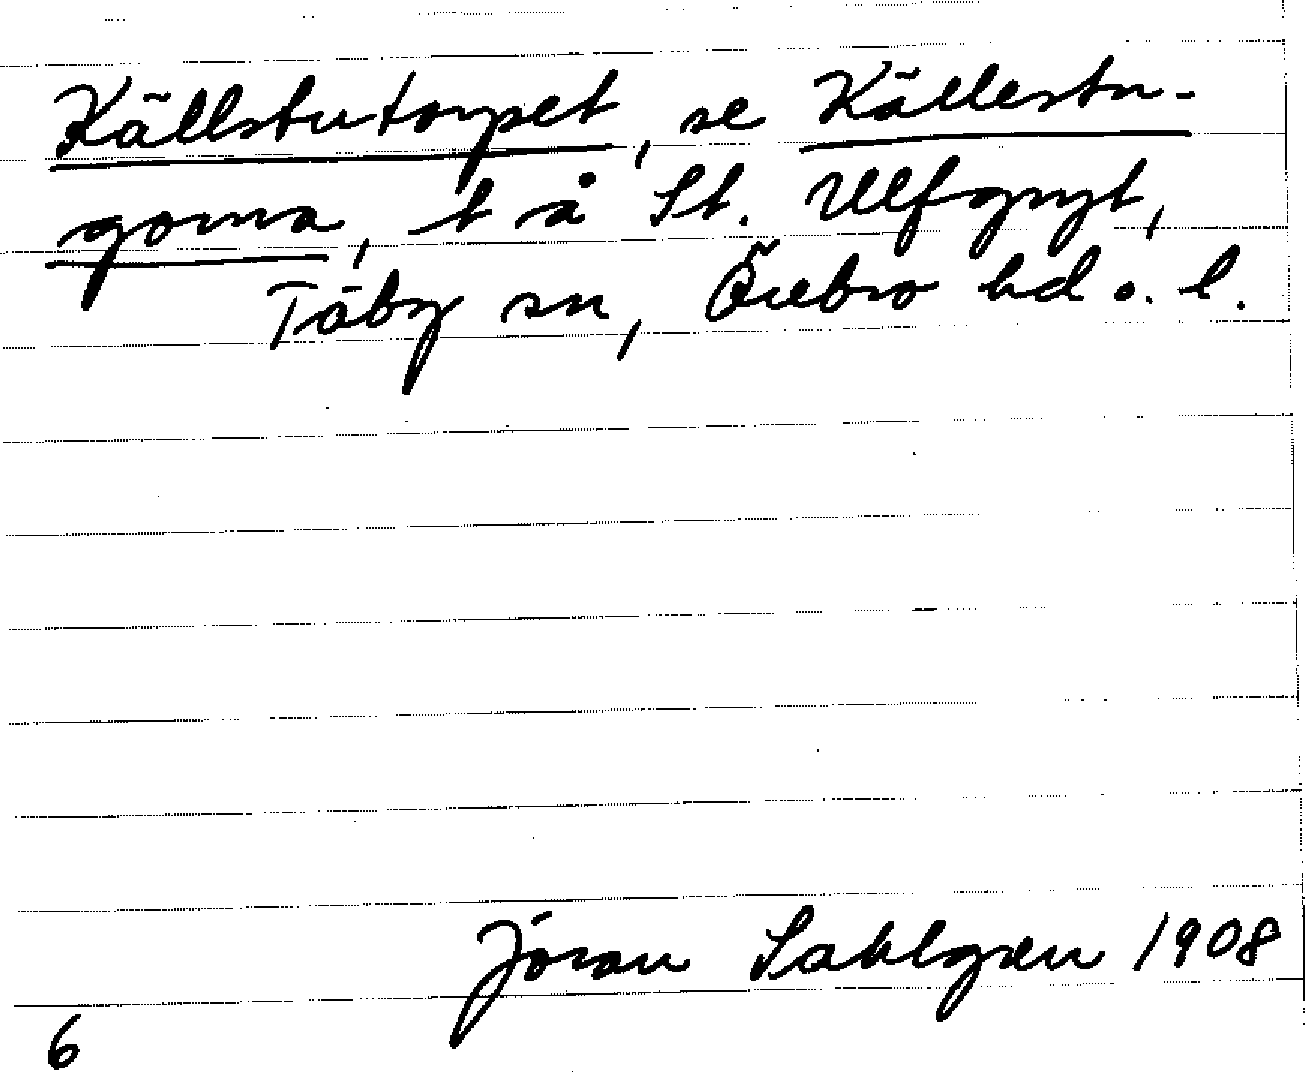 Källstutorpet, se Källestu-
gorna, t å St. Ulfgryt,
Täby sn, Örebro hd o. l.
Jöran Sahlgren 1908
6